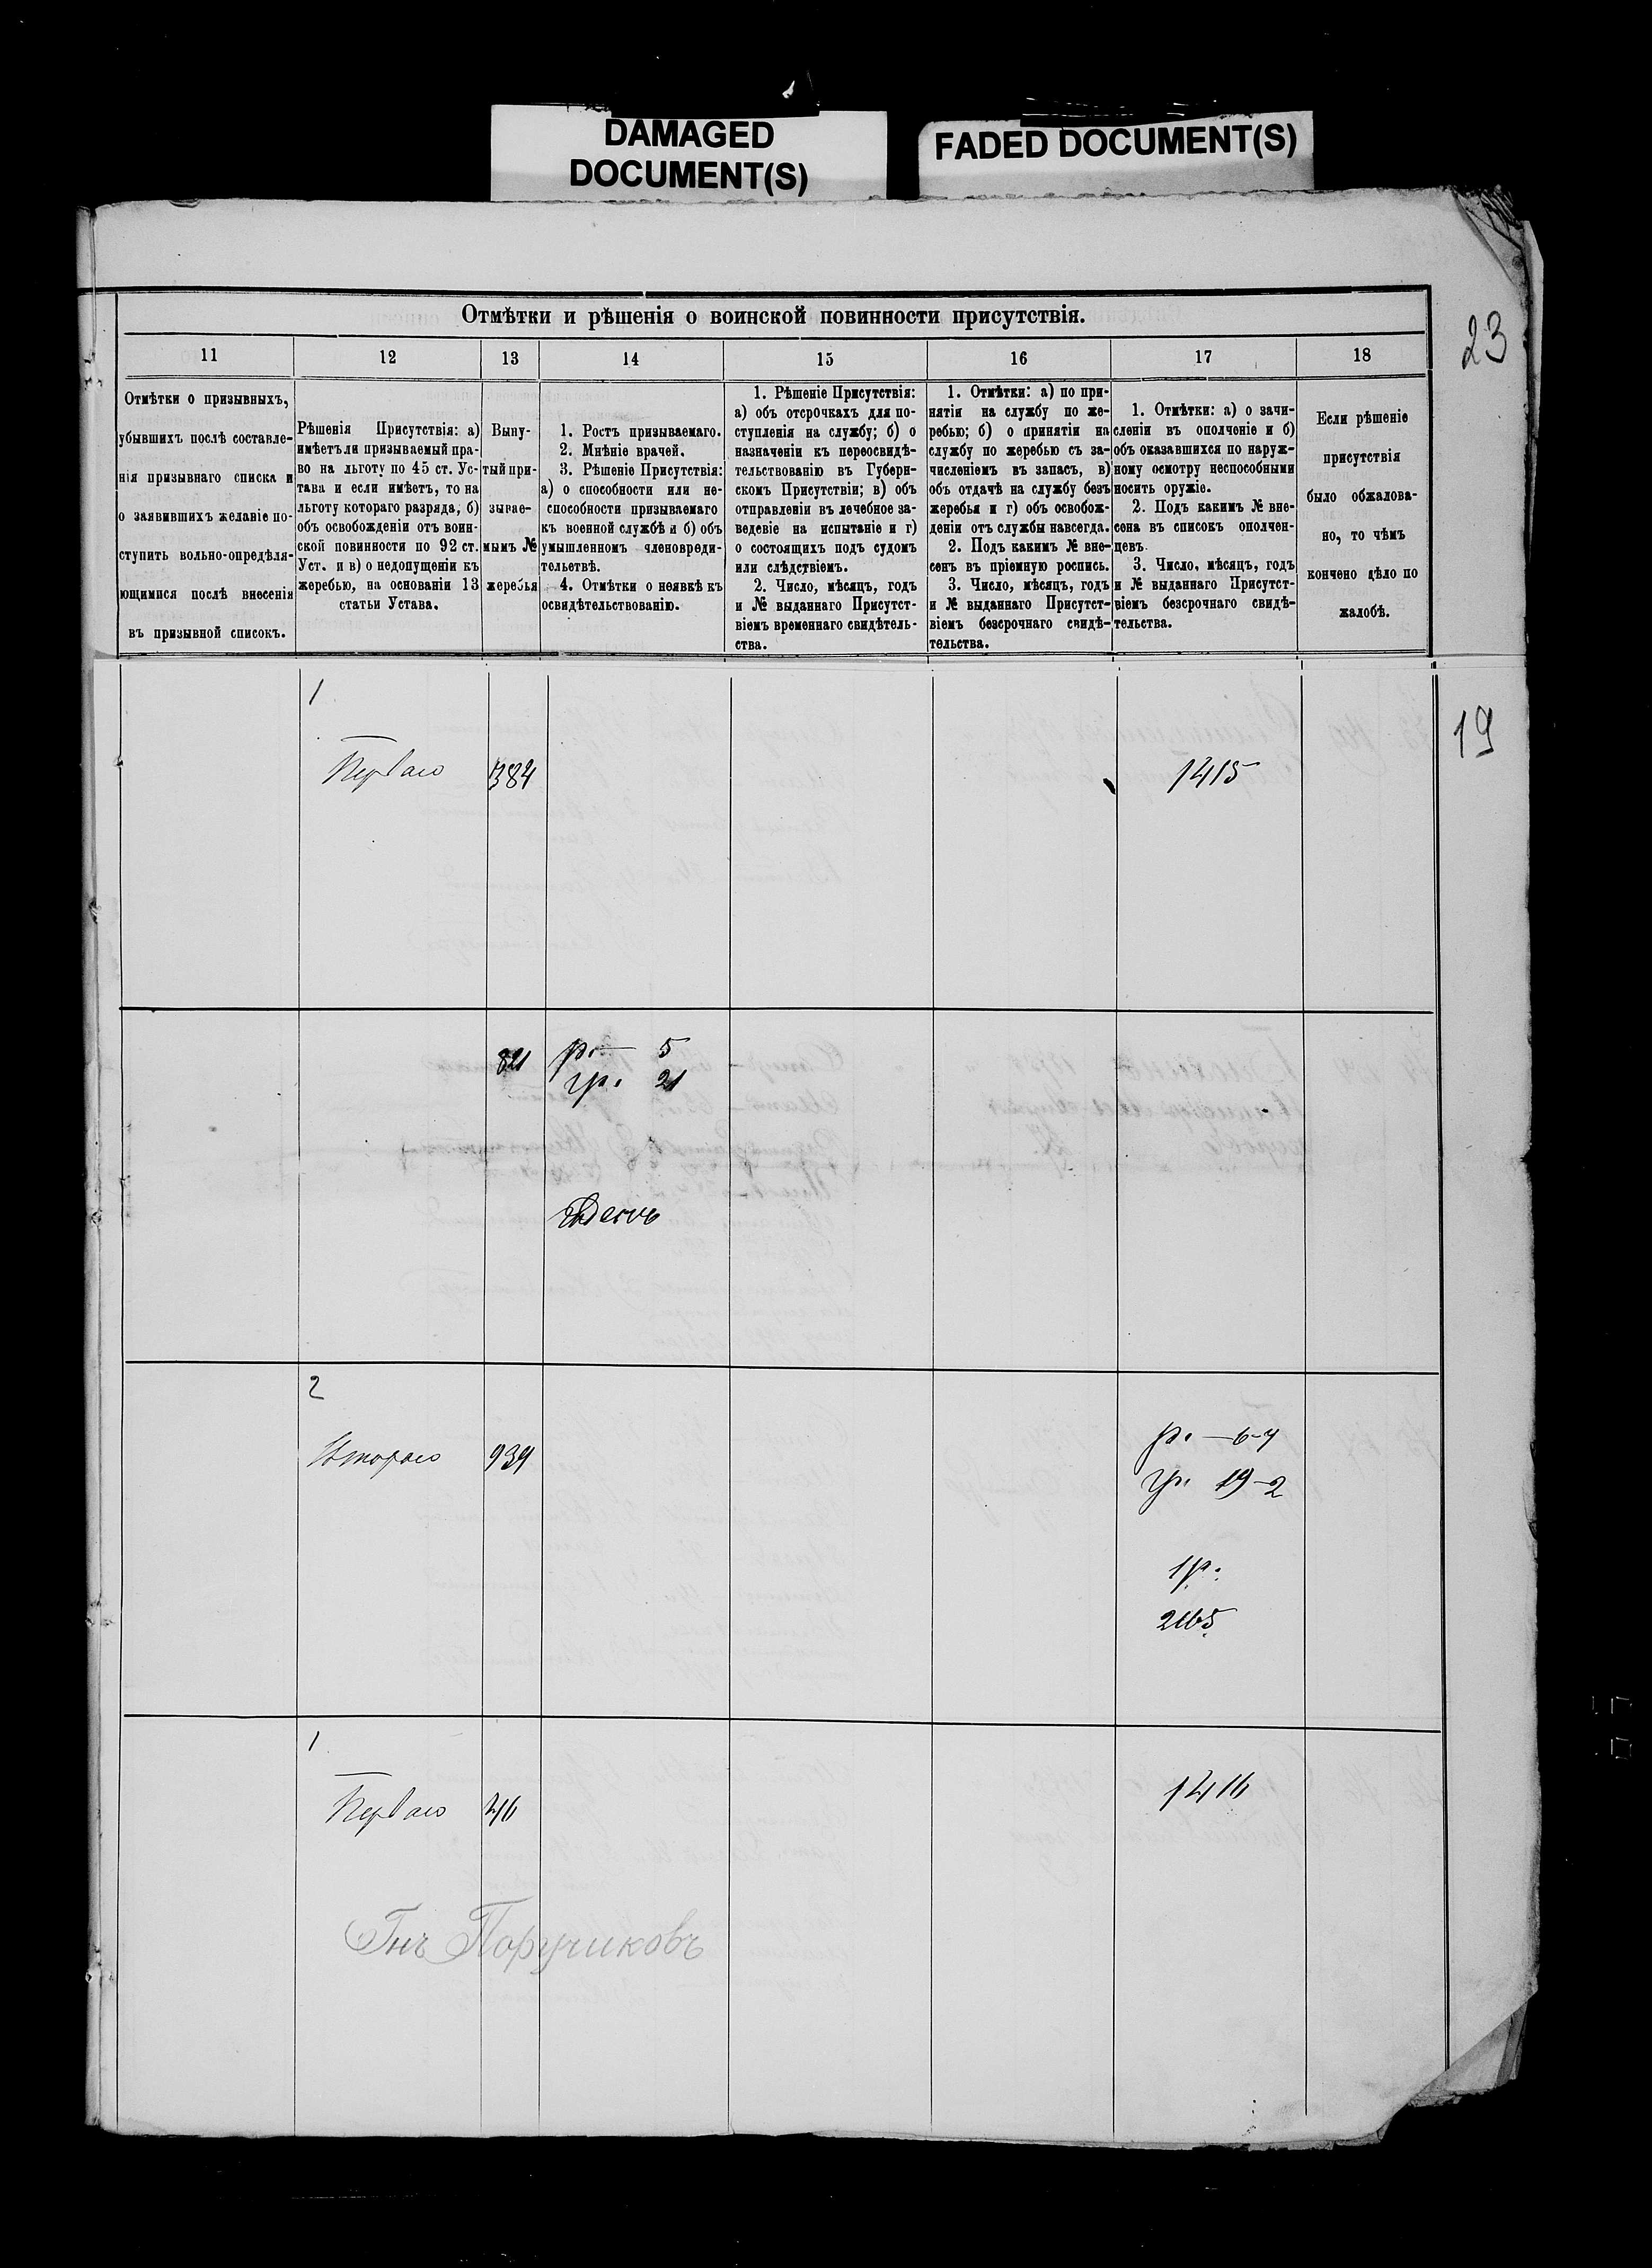 DAMAGED
DOCUMENT(S)
FADED DOCUMENT(S)
23
Отмѣтки и рѣшенія о воинской повинности присутствія.
11
12
13
14
15
16
17
18
Отмѣтки о призывныхъ,
убывшихъ послѣ составле-
нія призывнаго списка и
о заявившихъ желаніе по-
ступить вольно-опредѣля-
ющимися послѣ внесенія
въ призывной списокъ.
Рѣшенія Присутствія: а)
имѣетъ ли призываемый пра-
во на льготу по 45 ст. Ус-
тава и если имѣетъ, то на
льготу котораго разряда, б)
объ освобожденіи отъ воин-
ской повинности по 92 ст.
Уст. и в) о недопущеніи къ
жеребью, на основаніи 13
статьи Устава.
Выну-
тый при-
зывае-
мымъ №
жеребья
1. Ростъ призываемаго.
2. Мнѣніе врачей.
3. Рѣшеніе Присутствія:
а) о способности или не-
способности призываемаго
къ военной службѣ и б) объ
умышленномъ членовреди-
тельствѣ.
4. Отмѣтки о неявкѣ къ
освидѣтельствованію.
1. Рѣшеніе Присутствія:
а) объ отсрочкахъ для по-
ступленія на службу; б) о
назначеніи къ переосвидѣ-
тельствованію въ Губерн-
скомъ Присутствіи; в) объ
отправленіи въ лечебное за-
веденіе на испытаніе и г)
о состоящихъ подъ судомъ
или слѣдствіемъ.
2. Число, мѣсяцъ, годъ
и № выданнаго Присутст-
віемъ временнаго свидѣтель-
ства.
1. Отмѣтки: а) по при-
нятіи на службу по же-
ребью; б) о принятіи на
службу по жеребью съ за-
численіемъ въ запасъ, в)
объ отдачѣ на службу безъ
жеребья и г) объ освобож-
деніи отъ службы навсегда.
2. Подъ какимъ № вне-
сенъ въ пріемную роспись.
3. Число, мѣсяцъ, годъ
и № выданнаго Присутст-
віемъ безсрочнаго свидѣ-
тельства.
1. Отмѣтки: а) о зачи-
сленіи въ ополченіе и б)
объ оказавшихся по наруж-
ному осмотру неспособными
носить оружіе.
2. Подъ какимъ № вне-
сена въ списокъ ополчен-
цевъ.
3. Число, мѣсяцъ, годъ
и № выданнаго Присутст-
віемъ безсрочнаго свидѣ-
тельства.
Если рѣшеніе
присутствія
было обжалова-
но, то чѣмъ
кончено дѣло по
жалобѣ.
19
1
Перваго
384
1415
821
р. — 5
гр. 21
Годенъ
2
Втораго
939
р. — 6-4
гр. 19-2
1 р.
2165
1
Перваго
46
1416
Гнъ Поручиковъ